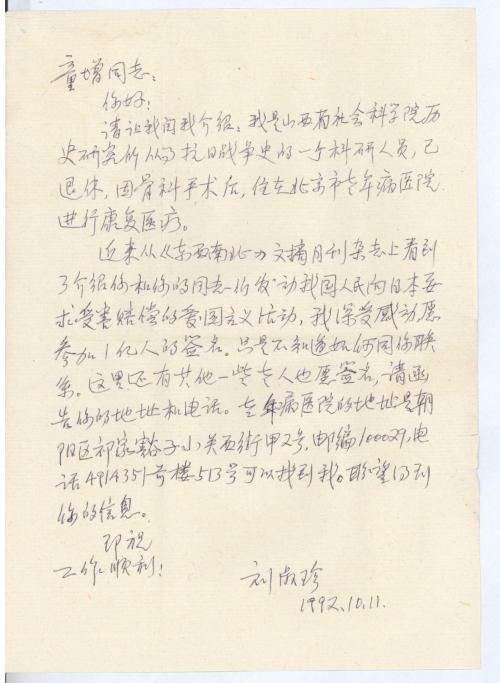 童增同志:
你好!
请让我自我介绍。我是山西省社会科学院历
史研究所从事抗日战争史的一个科研人员,已
退休,因骨科手术后,住在北京市老年病医院
进行康复医疗。
近来从《东西南北》文摘月刊杂志上看到
了介绍你和你的同志们发动我国人民向日本要
求受害赔偿的爱国主义活动,我深受感动,愿
参加1亿人的签名。只是不知道如何同你联
系。这里还有其他一些老人也愿签名,请函
告你的地址和电话。老年病医院的地址是朝
阳区祁家豁子小关西街甲2号,邮编100029,电
话4914351 号楼513号可以找到我。盼望得到
你的信息。
即祝
工作顺利!
刘淑珍
1992.10.11.